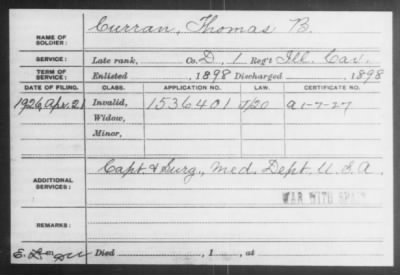 NAME OF SOLDIER: Curran, Thomas B.
SERVICE: Late rank, Co. D, 1 Reg't Ill. Cav.
TERM OF SERVICE: Enlisted , 1898 Discharged , 1898
DATE OF FILING. CLASS. APPLICATION NO. LAW. CERTIFICATE NO.
1926, Apr. 21 Invalid, 1536401 J/20 a 1-7-27
Widow,
Minor,
ADDITIONAL SERVICES: Capt. & Surg., Med. Dept. U.S.A.
WAR WITH SPAIN
REMARKS:
Died , 1 , at